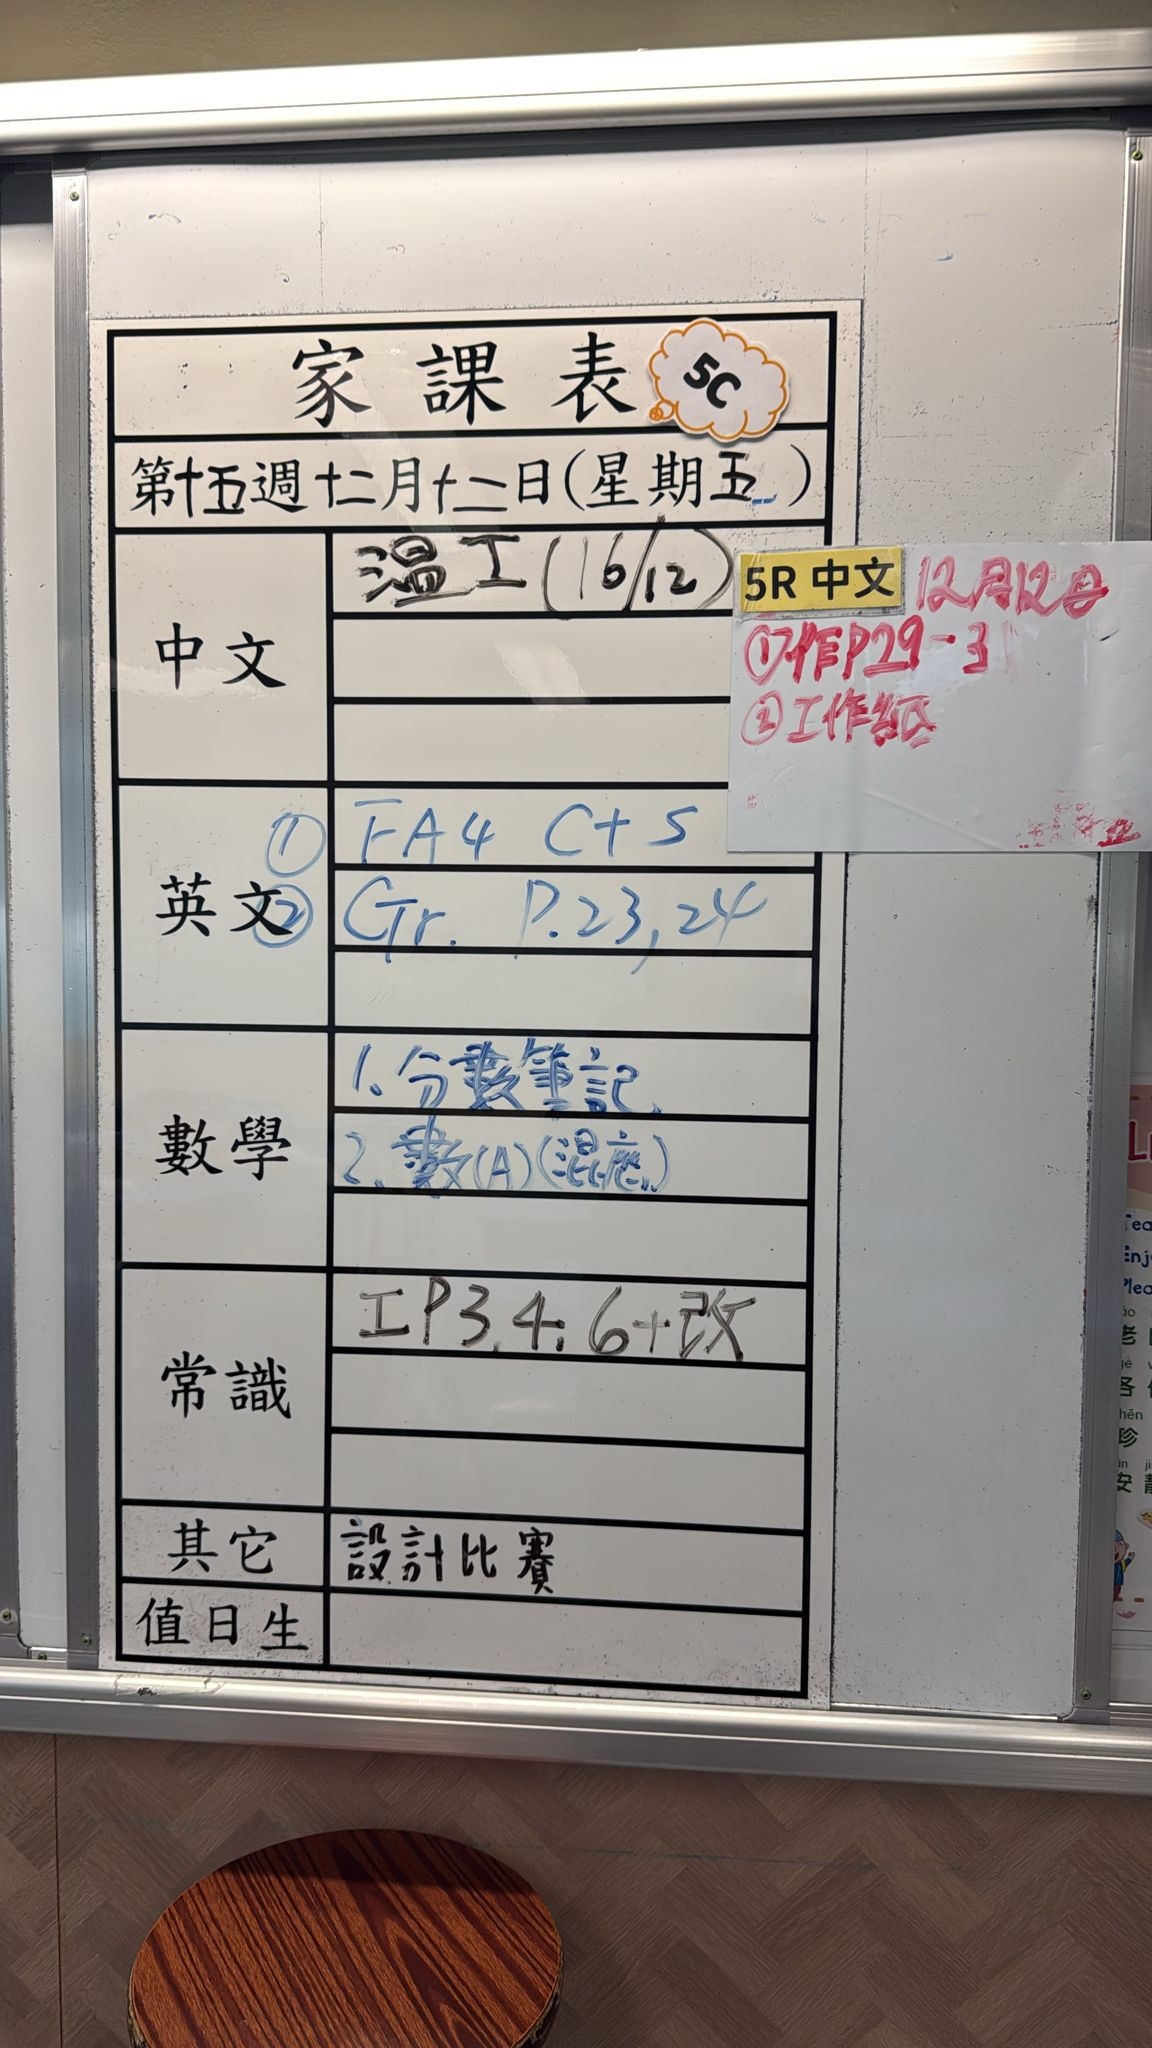 家課表 5C
第十五週十二月十二日(星期五)
中文
溫工(16/12)
5R 中文 12月12日
①作P29-31
②工作紙
英文
① FA4 C+S
② Gr. P.23,24
數學
1.分數筆記
2.數(A)(混應)
常識
工P3,4,6+改
其它
設計比賽
值日生
老
各
珍
安靜